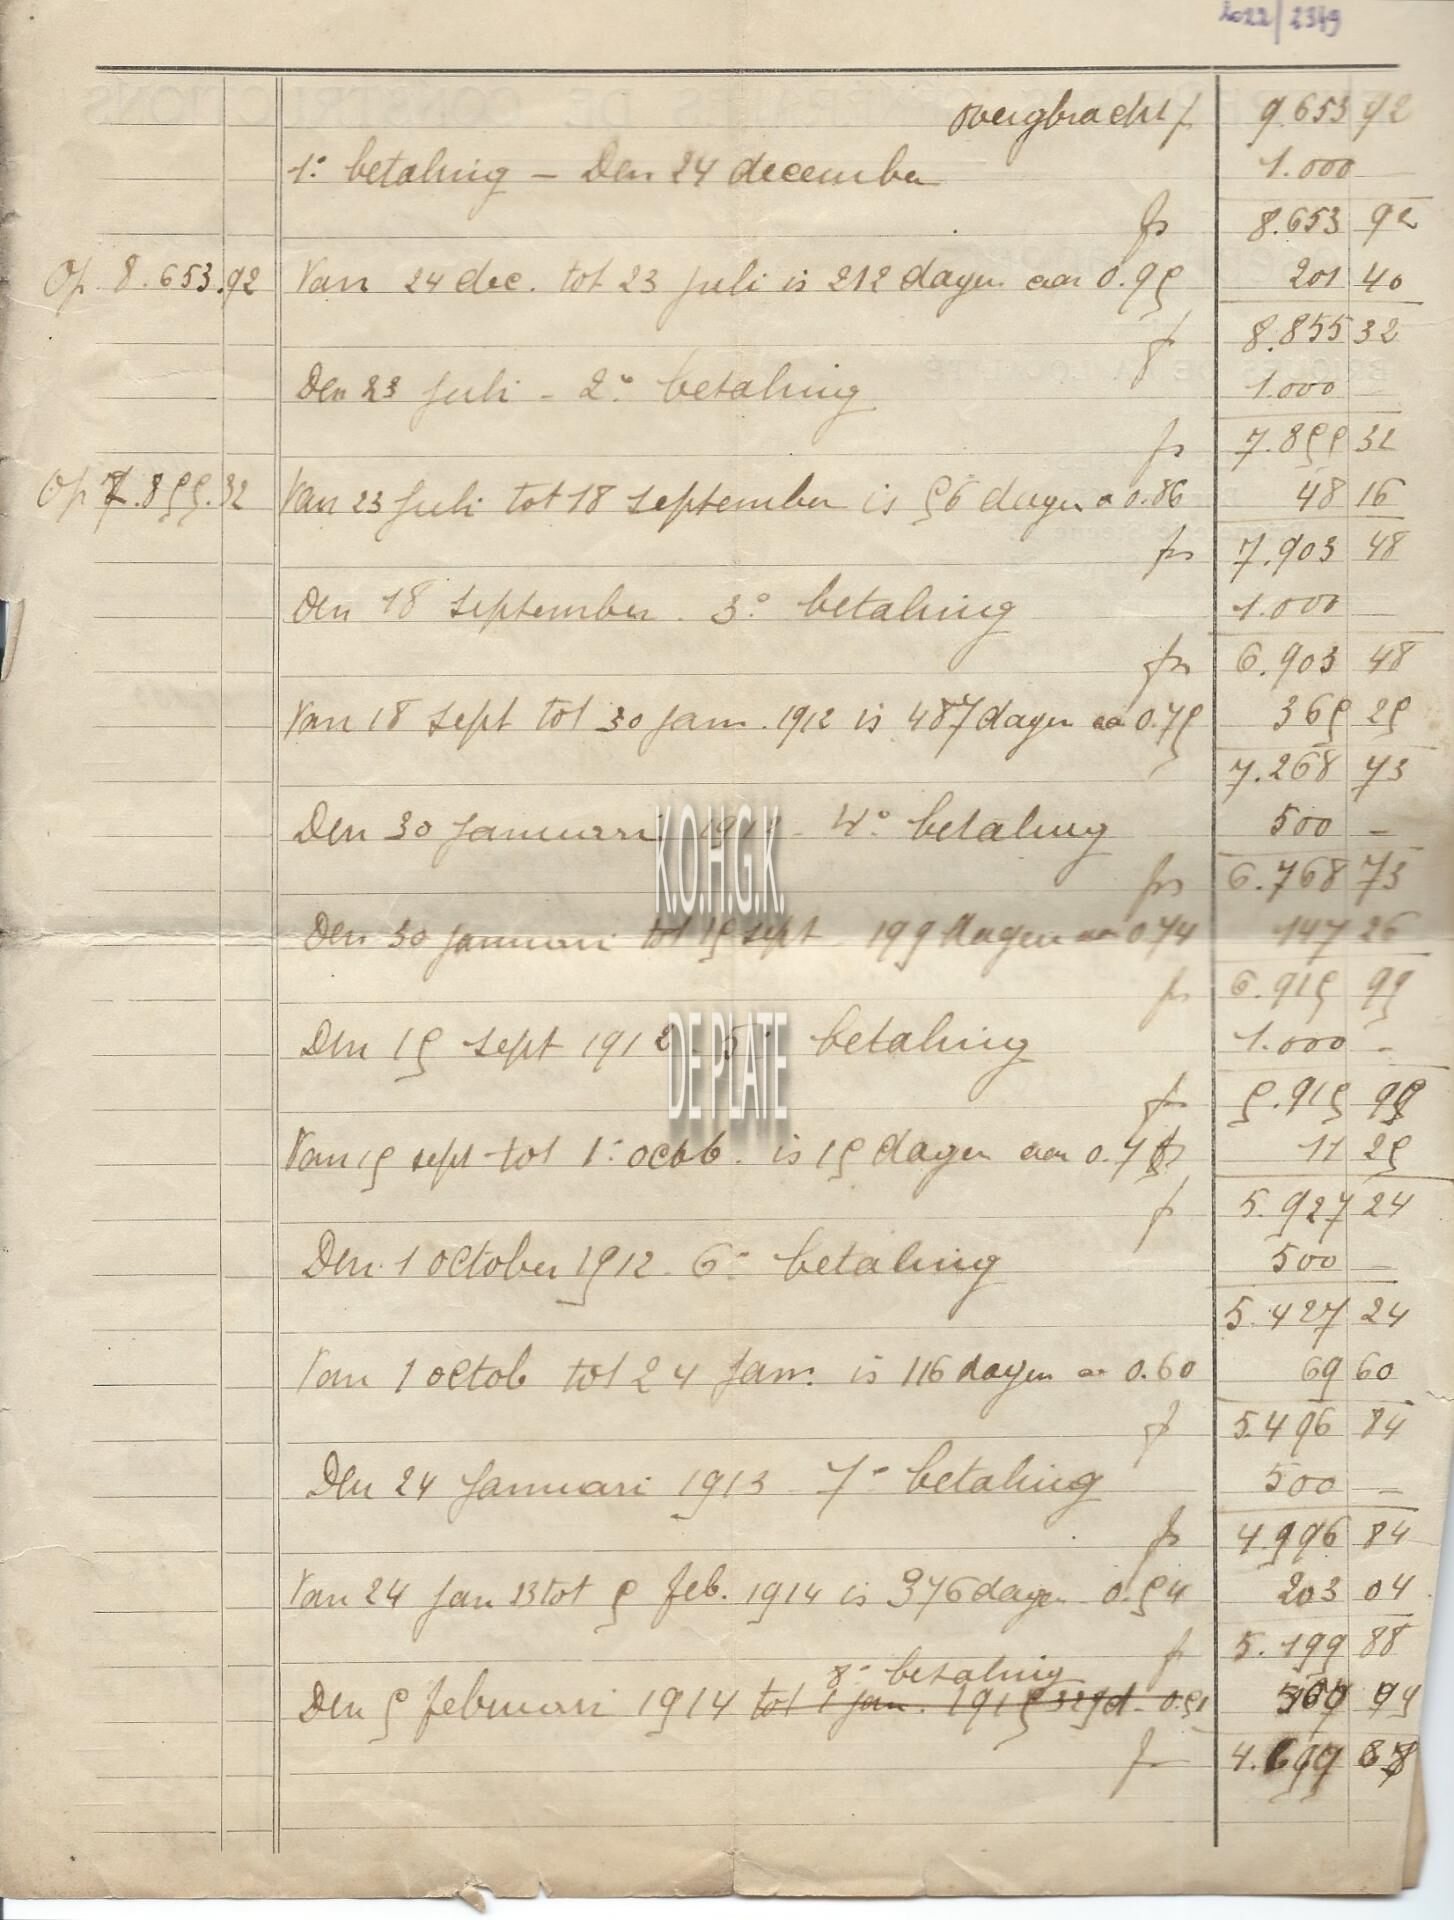 2022/2349
overgbracht f 9.653 92
1° betaling – Den 24 december 1.000 —
fs 8.653 92
Op 8.653.92 Van 24 dec. tot 23 juli is 212 dagen aan 0.95 201 40
f 8.855 32
Den 23 juli - 2° betaling 1.000 —
fs 7.855 32
Op 7.855.32 Van 23 juli tot 18 september is 56 dagen a 0.86 48 16
frs 7.903 48
Den 18 september. 3° betaling 1.000 —
frs 6.903 48
Van 18 sept tot 30 jan. 1912 is 487 dagen aa 0.75 365 25
7.268 73
Den 30 januari 1912 - 4° betaling 500 —
frs 6.768 73
Den 30 januari tot 15 sept 199 dagen aa 0.74 147 26
fs 6.915 99
Den 15 sept 1912 5° betaling 1.000 -
fr 5.915 99
Van 15 sept tot 1° octob. is 15 dagen aan 0.75 11 25
f 5.927 24
Den 1 October 1912 - 6° betaling 500 —
5.427 24
Van 1 octob tot 24 jan. is 116 dagen a 0.60 69 60
f 5.496 84
Den 24 Januari 1913 - 7° betaling 500 —
fs 4.996 84
Van 24 jan 23 tot 5 feb. 1914 is 376 dagen 0.54 203 04
f 5.199 88
8° betaling
Den 5 februari 1914 tot 1 jan. 1915 329 d - 0.51
fr 4.699 88
K.O.H.G.K.
DE PLATE